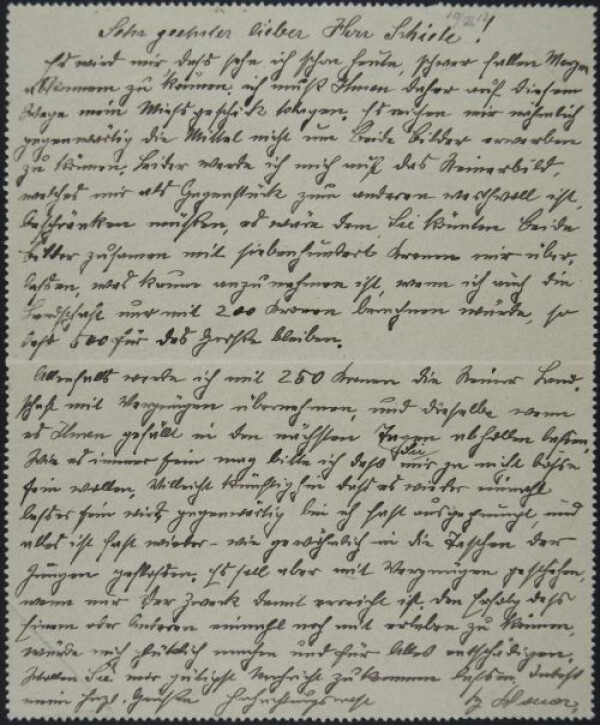 19 XII 17
Sehr geehrter lieber Herr Schiele!
Es wird mir, dass sehe ich schon heute, schwer fallen Morgen
abkommen zu können, ich muss Ihnen daher auf diesem
Wege mein Missgeschick sagen. Es reichen mir nähmlich
gegenwärtig die Mittel nicht um beide Bilder erwerben
zu können. Leider werde ich mich auf das Steinerbild,
welches mir als Gegenstück zum anderen werthvoll ist,
beschränken müssen, es wäre denn Sie könnten beide
Bilder zusamen mit siebenhundert Kronen mir über-
lassen, was kaum anzunehmen ist, wenn ich auch die
Landschaft nur mit 200 Kronen berechnen würde, so
dass 500 für das Große bleiben.
Allenfalls werde ich mit 250 Kronen die Steiner Land-
schaft mit Vergnügen übernehmen, und dieselbe wenn
es Ihnen gefällt in den nächsten Tagen abhollen lassen.
Wie es immer sein mag bitte ich dass Sie mir ja nicht böse
sein wollen. Villeicht künftighin dass es wieder einmahl
besser sein wird, gegenwärtig bin ich fast ausgepumpt, und
alles ist fast wieder – wie gewöhnlich in die Taschen der
Jungen geflossen. Es soll aber mit Vergnügen geschehen,
wenn nur der Zweck damit erreicht ist. Den Erfolg des
Einen oder Anderen einmahl noch mit erleben zu können,
würde mich glücklich machen und für Alles entschädigen.
Wollen Sie mir gütigst Nachricht zukommen lassen. Indess
mein herzl. Grüsse Hochachtungsvoll